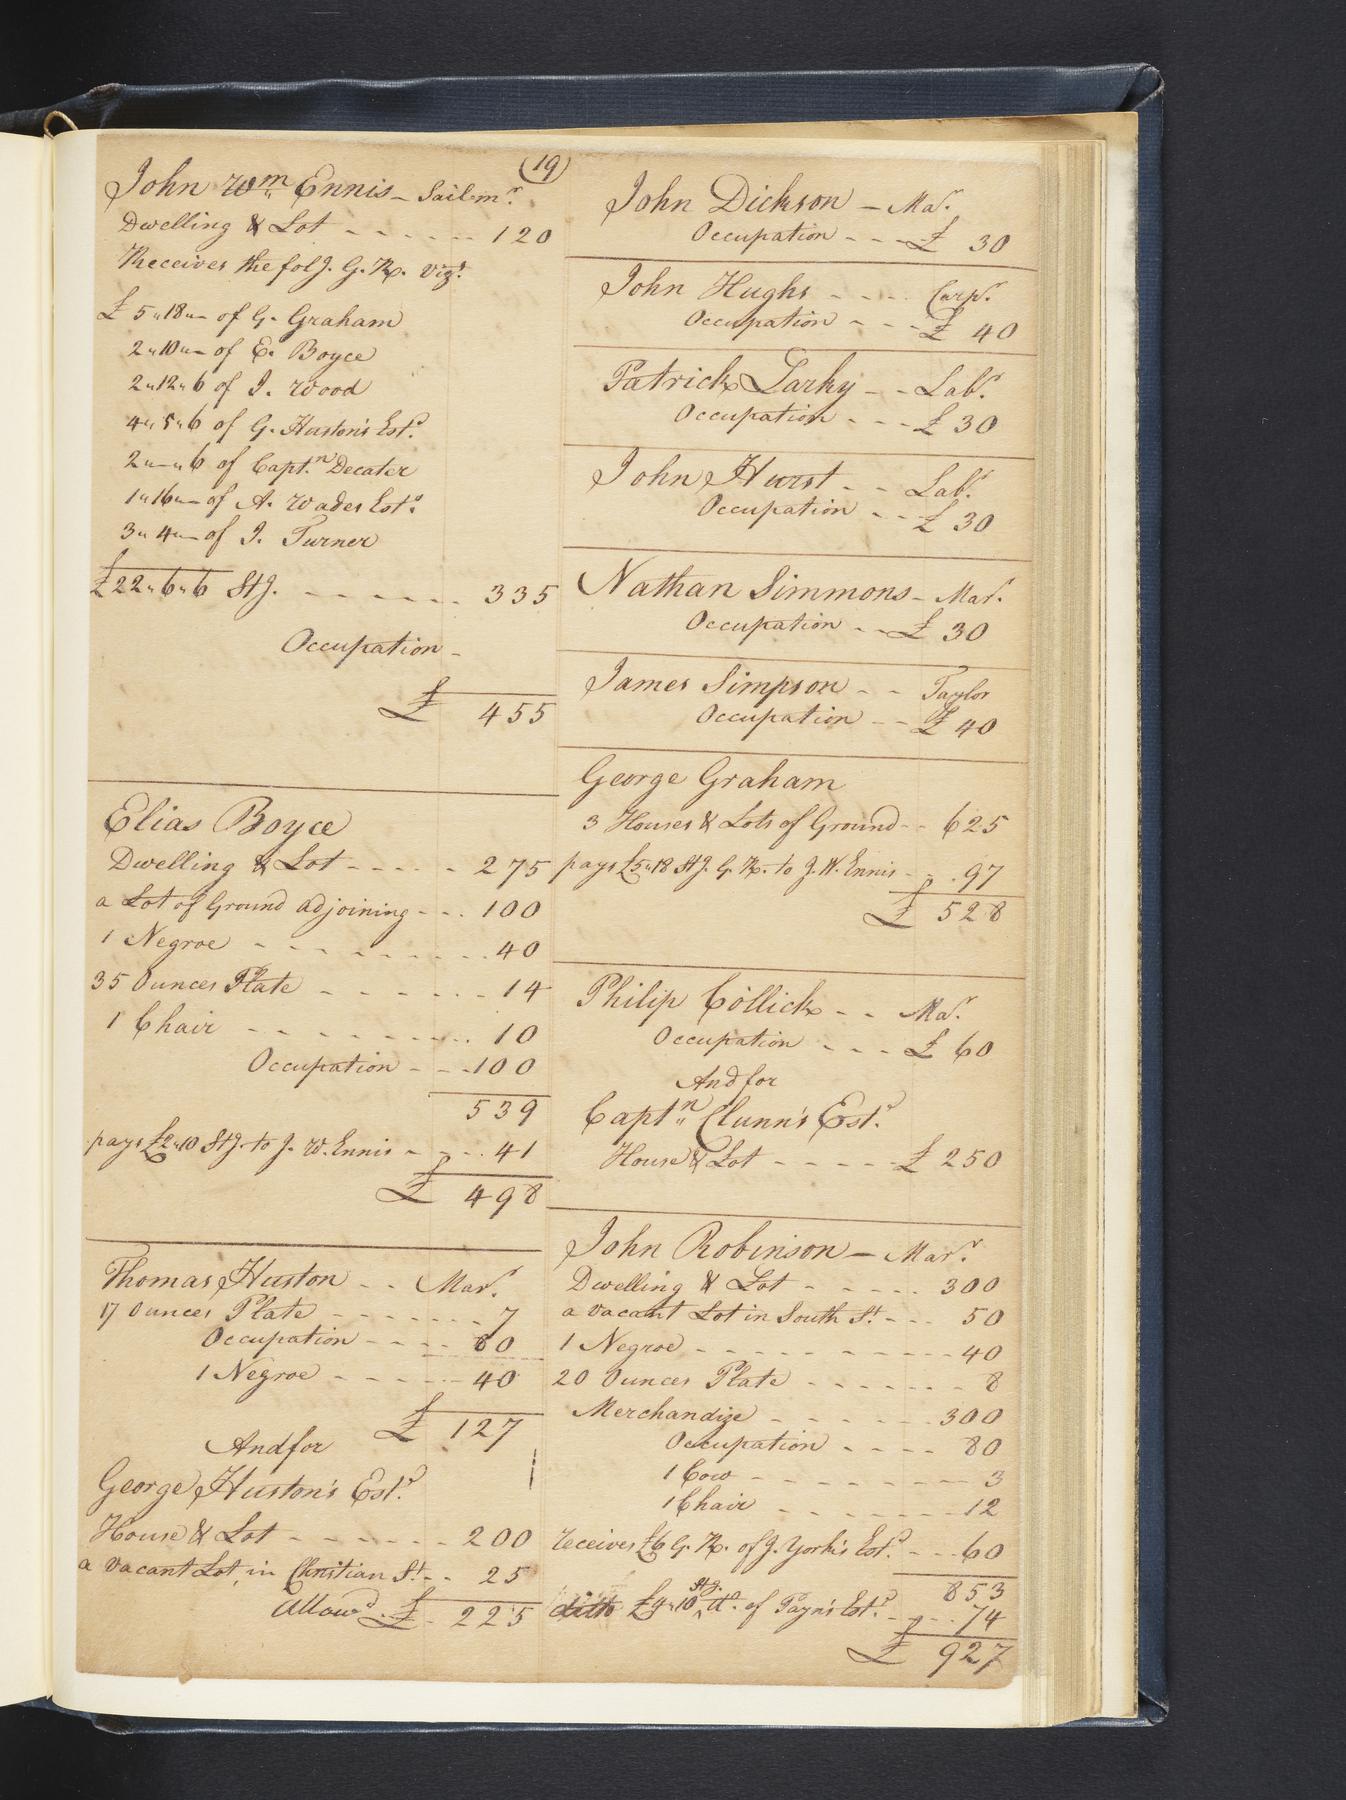 (19)
John Wm Ennis - Sailmr.
Dwelling & Lot - - - - - - 120
Receives the folg. G. R. Vizt.
£ 5"18"- of G. Graham
2"10"- of E. Boyce
2"12"6 of J. Wood
4"5"6 of G. Huston's Estd.
2"-"6 of Captn. Decater
1"16"- of A. Wades Estd.
3"4"- of J. Turner
£22"6"6 Stg. - - - - - - 335
Occupation -
£ 455
Elias Boyce
Dwelling & Lot - - - - - 275
a Lot of Ground adjoining - - - 100
1 Negroe - - - - - - - 40
35 Ounces Plate - - - - - - 14
1 Chair - - - - - - - - 10
Occupation - - - 100
539
pays £2"10 Stg. to J. W. Ennis - - - 41
£ 498
Thomas Huston - - Marr.
17 Ounces Plate - - - - - - 7
Occupation - - - - 80
1 Negroe - - - - - 40
£ 127
And for
George Huston's Estd.
House & Lot - - - - - - 200
a vacant Lot, in Christian St. - - 25
Allowd. £ 225
John Dickson - Mar.
Occupation - - - £ 30
John Hughs - - - - Carpr.
Occupation - - - £ 40
Patrick Larky - - Labr.
Occupation - - - £ 30
John Hurst - - Labr.
Occupation - - £ 30
Nathan Simmons - Marr.
Occupation - - £ 30
James Simpson - - Taylor
Occupation - - £ 40
George Graham
3 Houses & Lots of Ground - - 625
pays £5"18 Stg. G. R. to J. W. Ennis - - 97
£ 528
Philip Collick - - Mar.
Occupation - - - £ 60
And for
Captn. Clunn's Estd.
House & Lot - - - - - £ 250
John Robinson - Marr.
Dwelling & Lot - - - - - 300
a vacant Lot in South St. - - - 50
1 Negroe - - - - - - - - 40
20 Ounces Plate - - - - - - - 8
Merchandize - - - - - - 300
Occupation - - - - 80
1 Cow - - - - - - - - 3
1 Chair - - - - - - - 12
receives £6 G. R. of J. York's Estd. - - 60
853
ditto £4"10 Stg. do. of Payn's Estd. - - - 74
£ 927